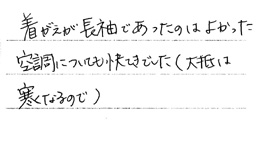 着がえが長袖であったのはよかった
空調についても快てきでした(大抵は
寒くなるので)